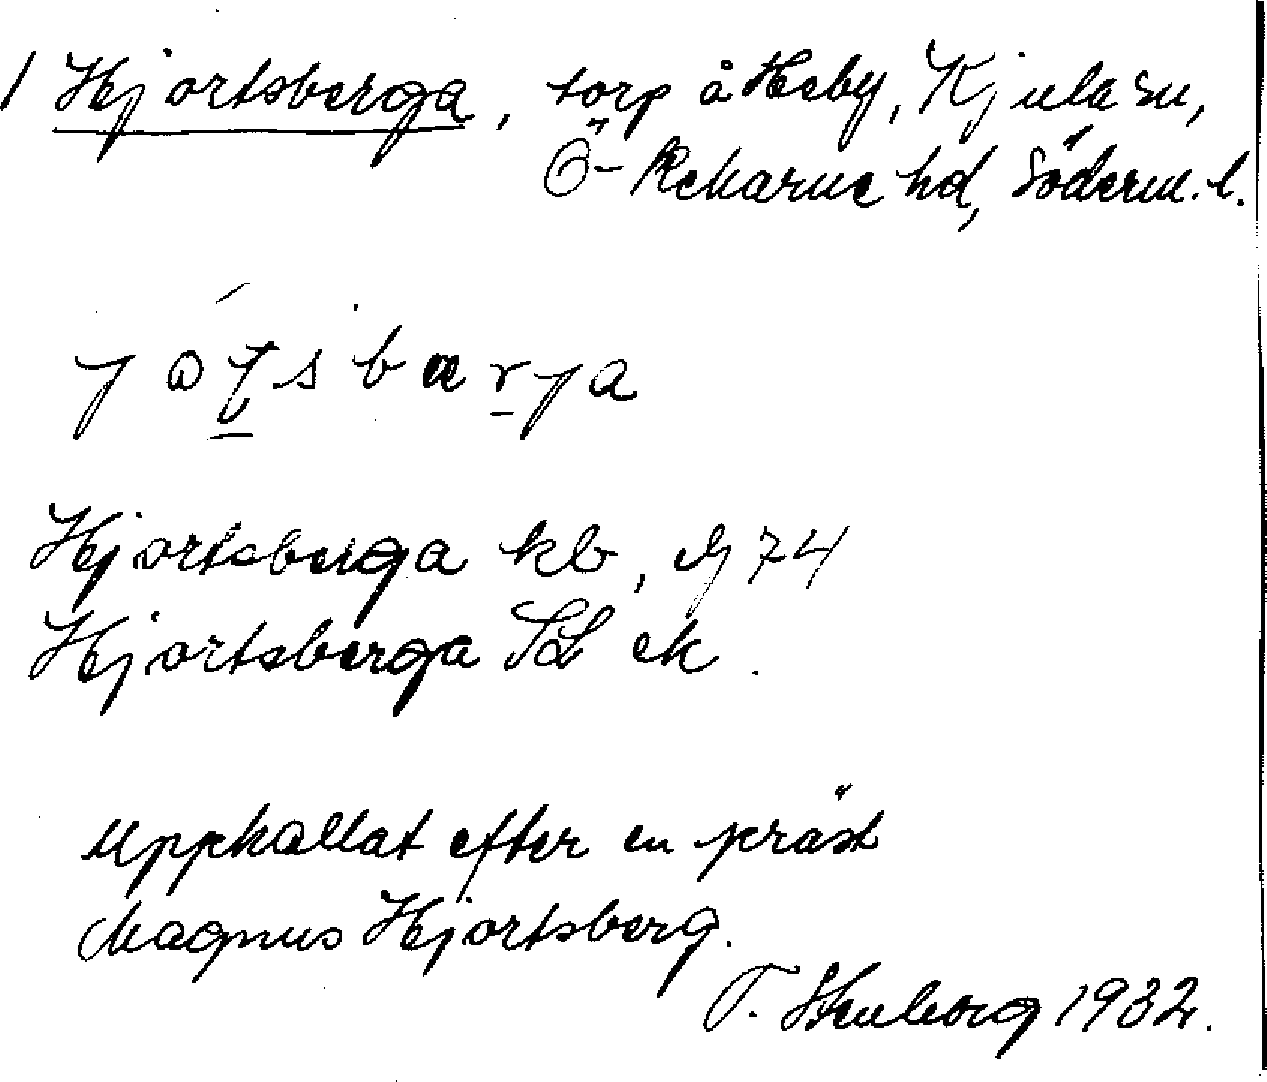 1 Hjortsberga, torp å Heby, Kjula sn,
Ö-Rekarne hd, Söderm. l.
Hjortsberga kb, EJ 74
Hjortsberga SL ek.
Uppkallat efter en präst
Magnus Hjortsberg.
T. 1932.